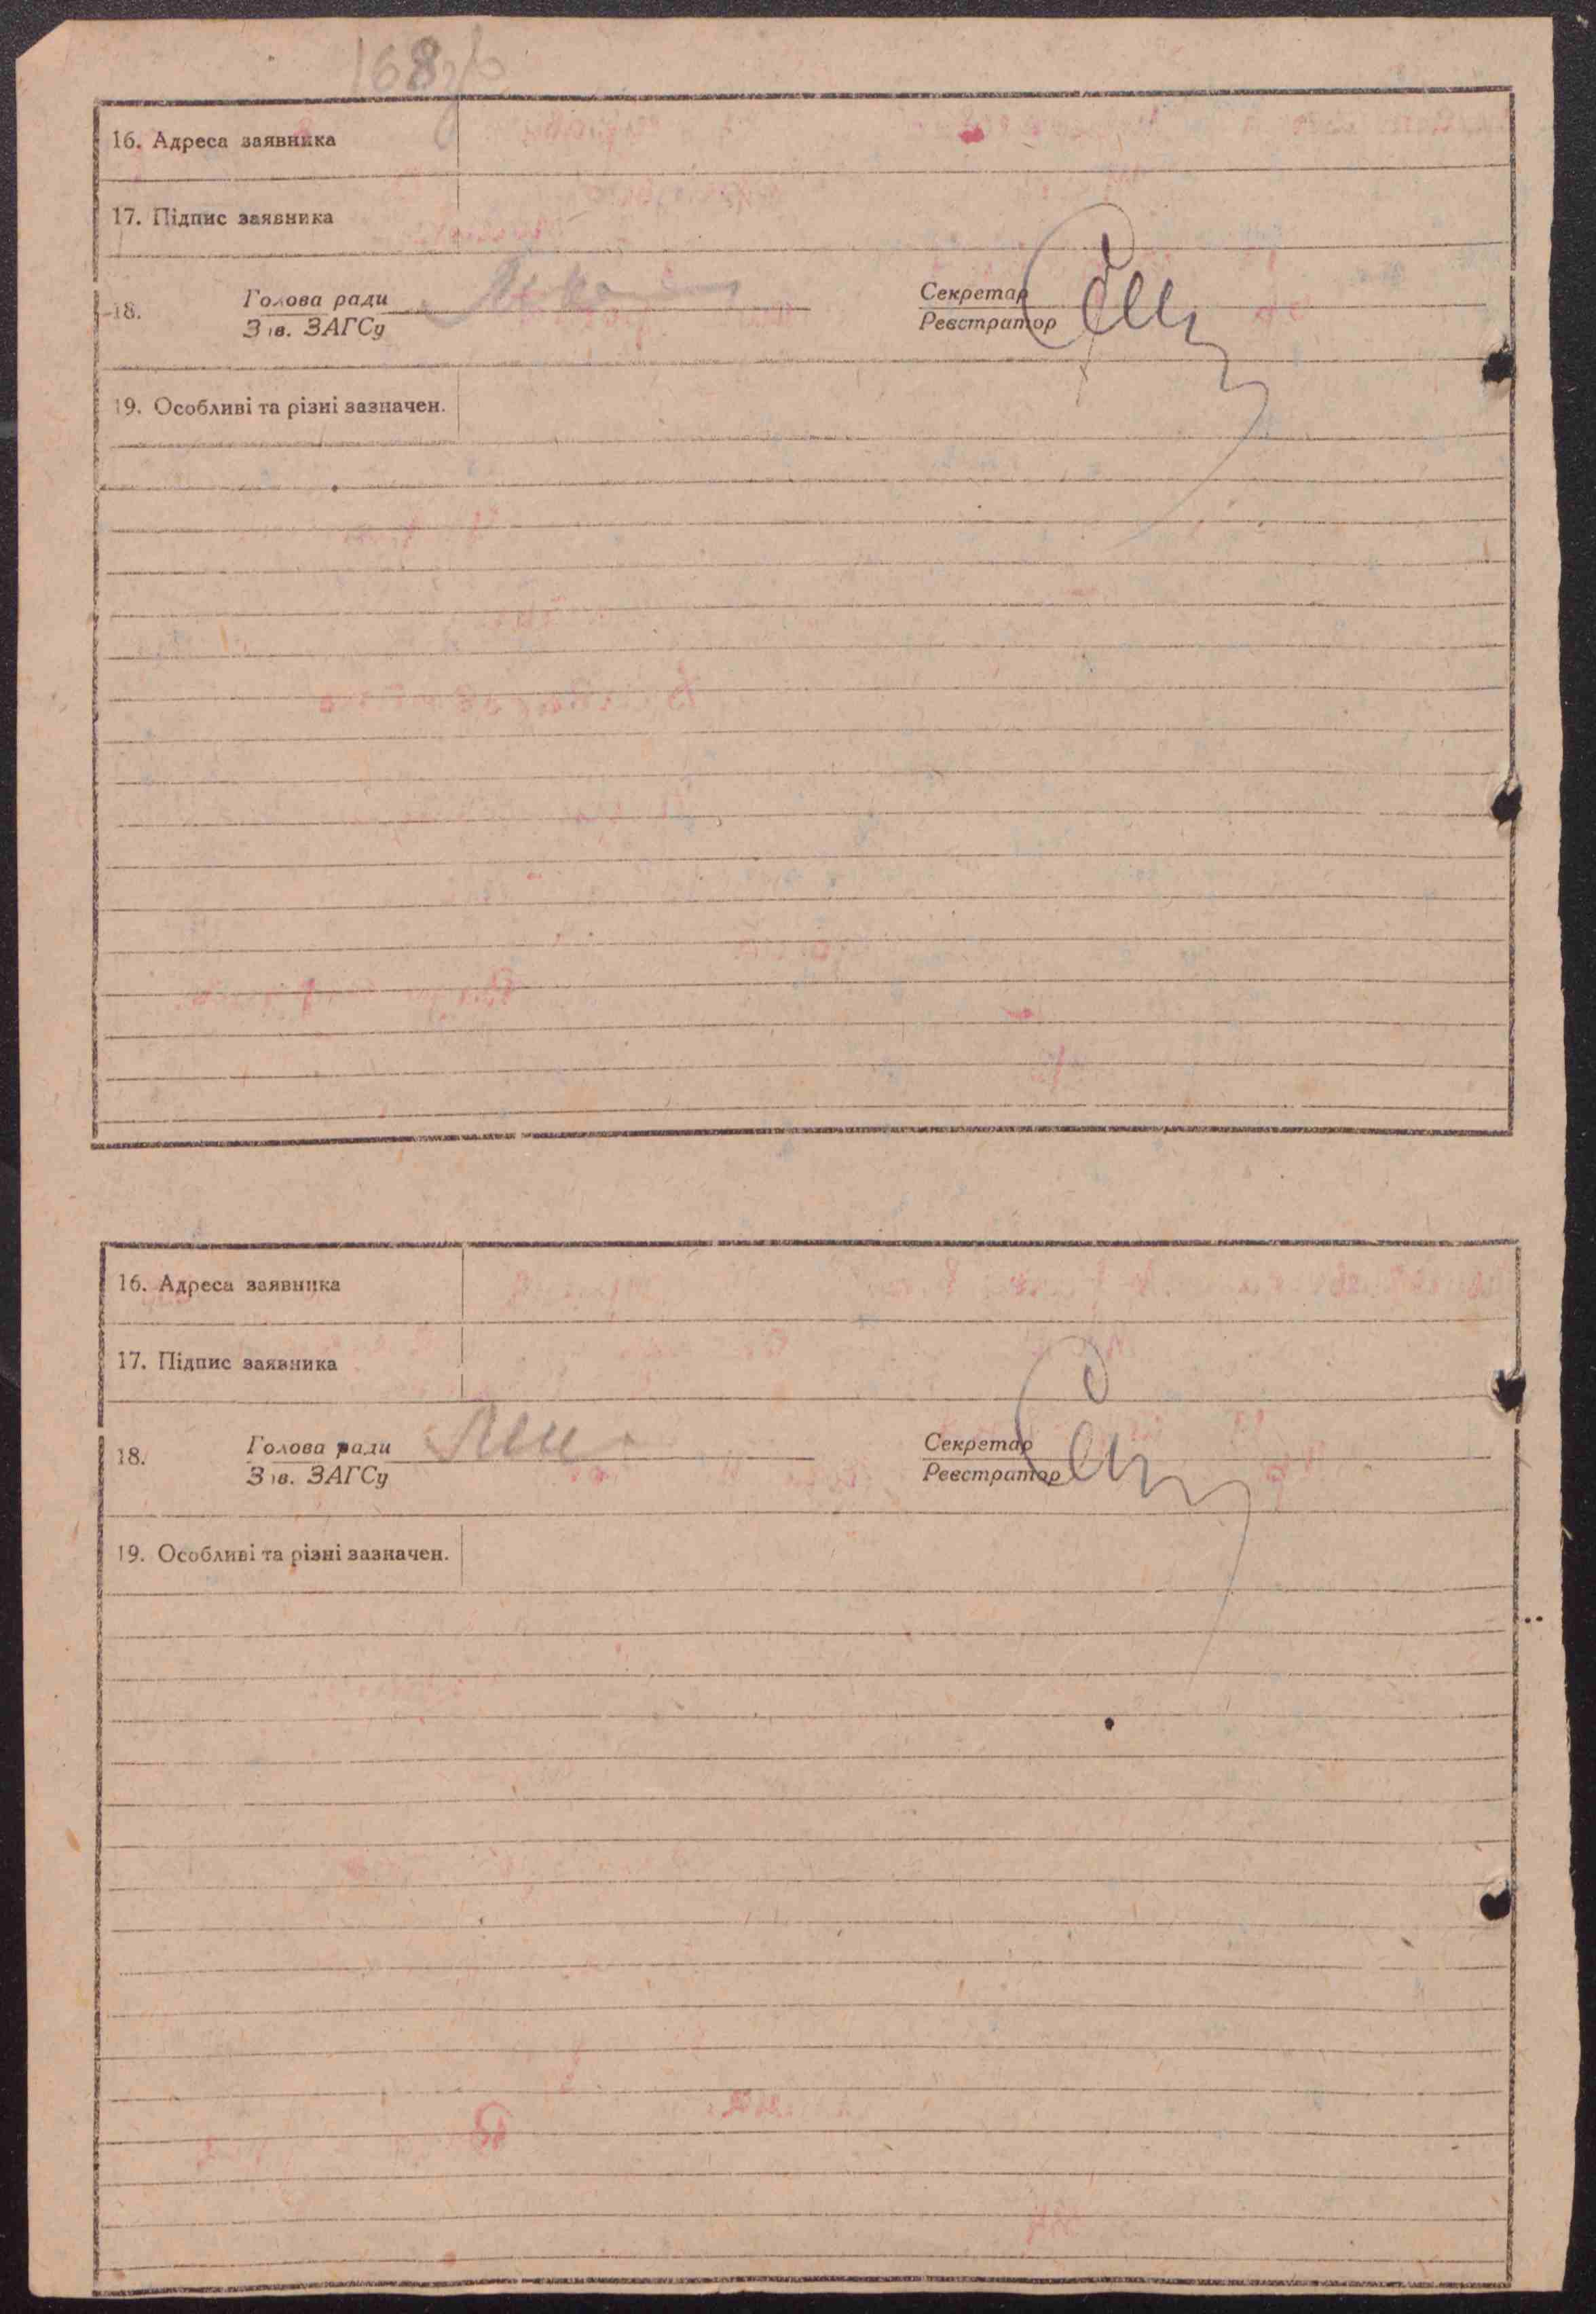 168зв
16. Адреса заявника
17. Підпис заявника
18. Голова ради Секретар
Зав. ЗАГСу Реєстратор
19. Особливі та різні зазначен.
16. Адреса заявника
17. Підпис заявника
18. Голова ради Секретар
Зав. ЗАГСу Реєстратор
19. Особливі та різні зазначен.